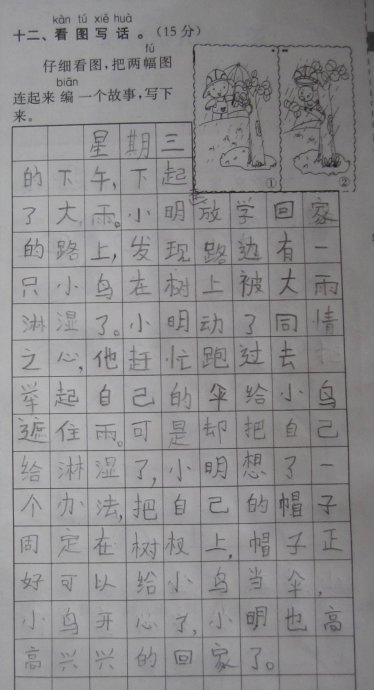 kàn tú xiě huà
十二、看图写话。(15分)
fú
仔细看图,把两幅图
biān
连起来 编 一个故事,写下
来。
① ②
星期三
的下午,下起
了大雨。小明放学回家
的路上,发现路边有一
只小鸟在树上被大雨
淋湿了。小明动了同情
之心,他赶忙跑过去
举起自己的伞给小鸟
遮住雨。可是却把自己
给淋湿了,小明想了一
个办法,把自己的帽子
固定在树杈上,帽子正
好可以给小鸟当伞,
小鸟开心了,小明也高
高兴兴的回家了。